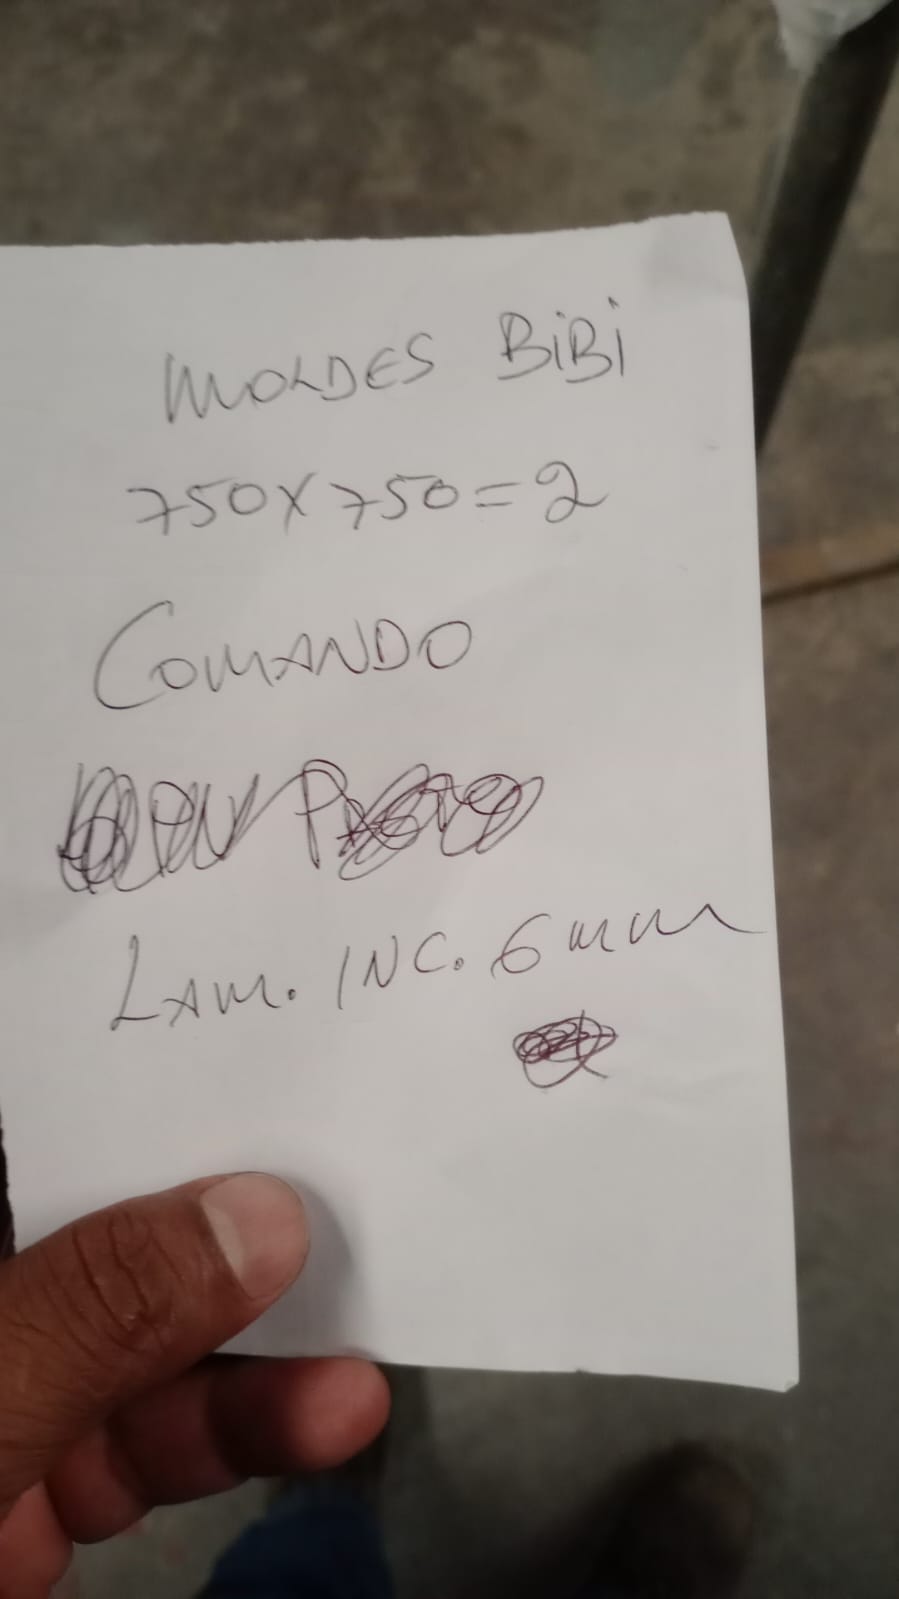 MOLDES BiBi
750X750=2
COMANDO
LAM. INC. 6mm